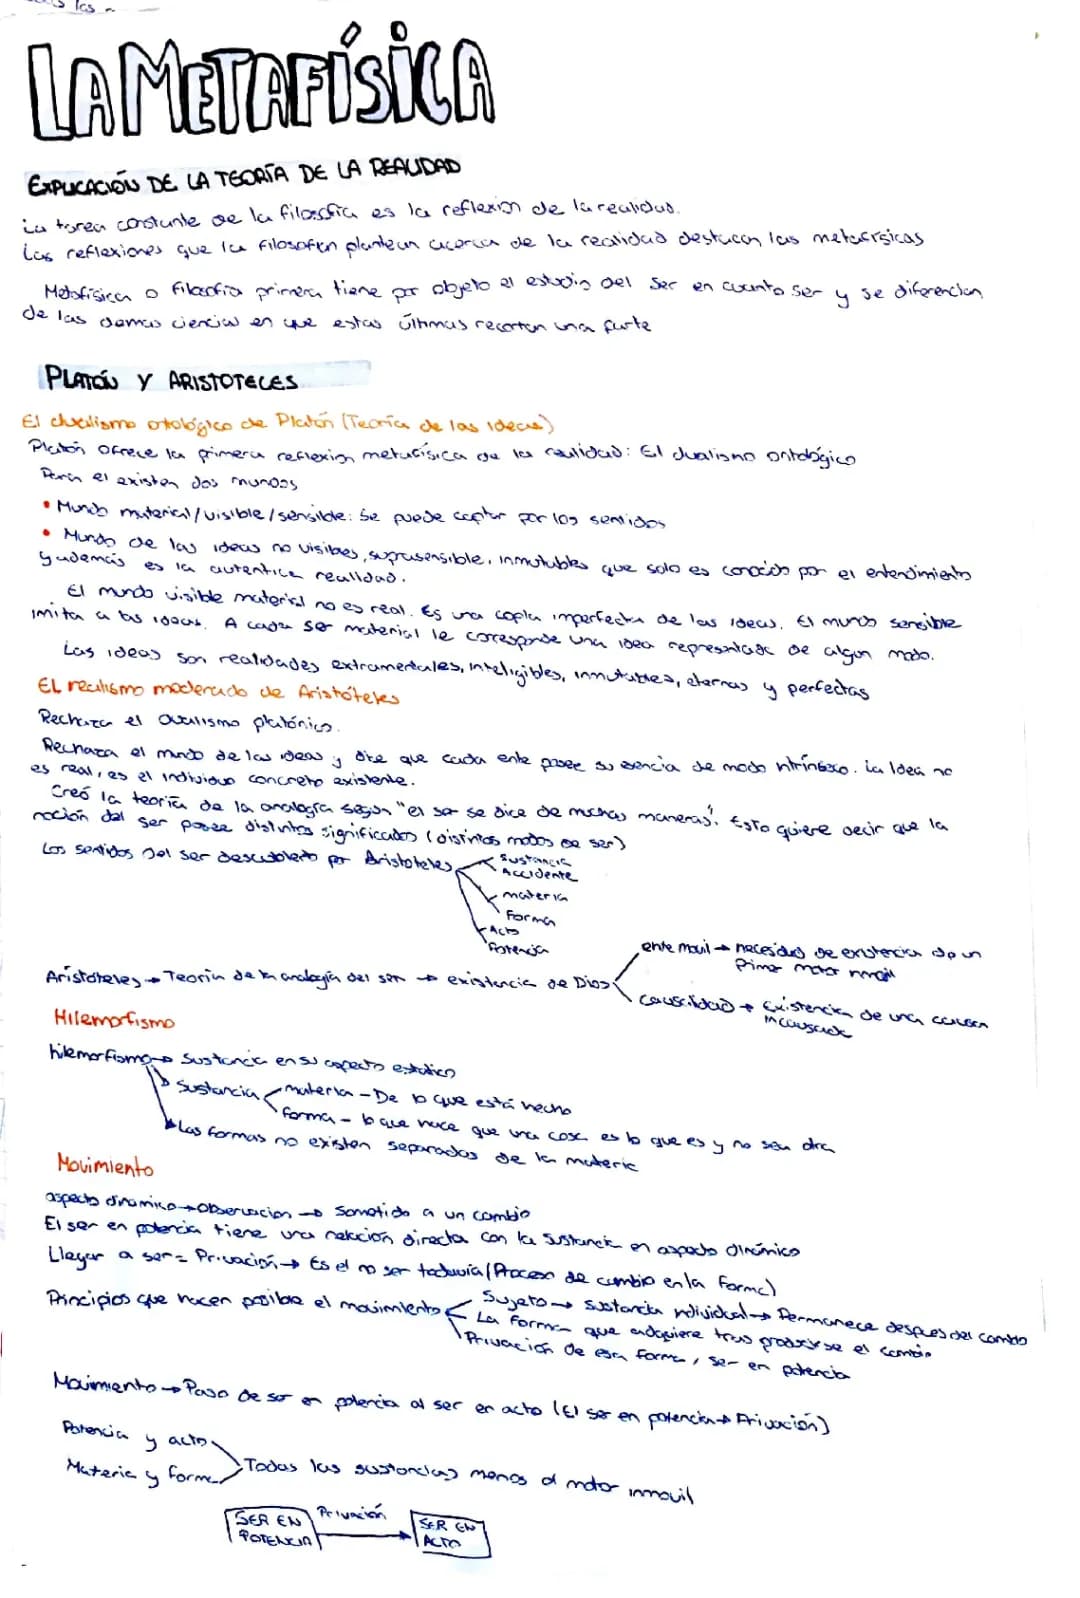 LA METAFÍSICA
EXPLICACIÓN DE LA TEORÍA DE LA REALIDAD
La tarea constante de la filosofía es la reflexión de la realidad.
Las reflexiones que la filosofía plantean acerca de la realidad destacan las metafísicas
Metafísica o filosofía primera tiene por objeto el estudio del ser en cuanto ser y se diferencian
de las demas ciencias en que estas últimas recortan una parte
PLATÓN Y ARISTOTELES
El dualismo otológico de Platón (Teoría de las ideas)
Platón ofrece la primera reflexión metafísica de la realidad: El dualismo ontológico
Para el existen dos mundos
• Mundo material/visible/sensible: Se puede captar por los sentidos
• Mundo de las ideas no visibles, suprasensible, inmutables que solo es conocido por el entendimiento
y además es la autentica realidad.
El mundo visible material no es real. Es una copia imperfecta de las ideas. El mundo sensible
imita a las ideas. A cada ser material le corresponde una idea representada de algun modo.
Las ideas son realidades extramentales, inteligibles, inmutables, eternas y perfectas
El realismo moderado de Aristóteles
Rechaza el dualismo platónico.
Rechaza el mundo de las ideas y dice que cada ente posee su esencia de modo intrínseco. La Idea no
es real, es el individuo concreto existente.
Creó la teoría de la analogía según "el ser se dice de muchas maneras". Esto quiere decir que la
noción del ser posee distintos significados (distintos modos de ser)
Los sentidos del ser descubierto por Aristoteles
Sustancia
Accidente
materia
Forma
Acto
Potencia
ente movil → necesidad de existencia de un
Primer motor inmovil
Aristóteles → Teoría de la analogía del ser → existencia de Dios
causalidad → Existencia de una causa
incausada
Hilemorfismo
hilemorfismo → Sustancia en su aspecto estático
Sustancia
materia - De lo que está hecho
forma - lo que hace que una cosa es lo que es y no sea otra
Las formas no existen separadas de la materia
Movimiento
aspecto dinamico → Observacion → Sometido a un cambio
El ser en potencia tiene una relación directa con la sustancia en aspecto dinámico
Llegar a ser = Privación → Es el no ser todavía (Proceso de cambio en la forma)
Principios que hacen posible el movimiento
Sujeto → Sustancia individual → Permanece despues del cambio
La Forma que adquiere tras producirse el cambio
Privación de esa forma, ser en potencia
Movimiento → Paso de ser en potencia al ser en acto (El ser en potencia → Privación)
Potencia y acto
Materia y forma
Todas las sustancias menos el motor inmovil
SER EN
POTENCIA
Privación
SER EN
ACTO